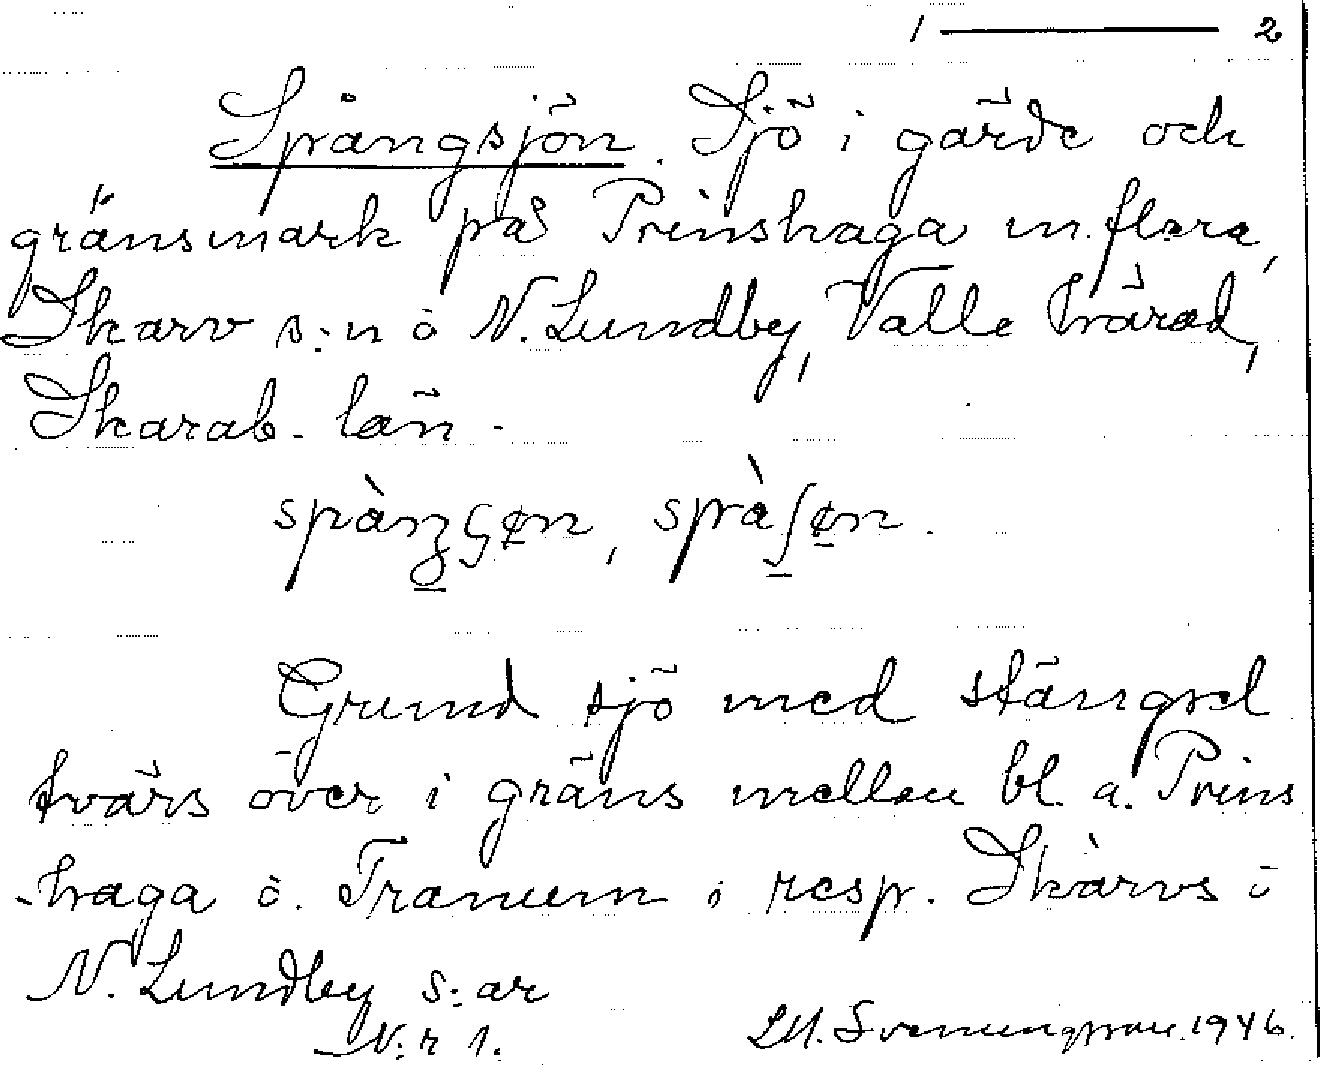 1 — 2
Spångsjön. Sjö i gärde och
gränsmark på Prinshaga m. flera,
Skarv s:n o N. Lundby, Valle härad,
Skarab. län.
Grund sjö med stängsel
tvärs över i gräns mellan bl. a. Prins
-haga o. Tranum i resp. Skärvs o
N. Lundby s:ar
N:r 1.